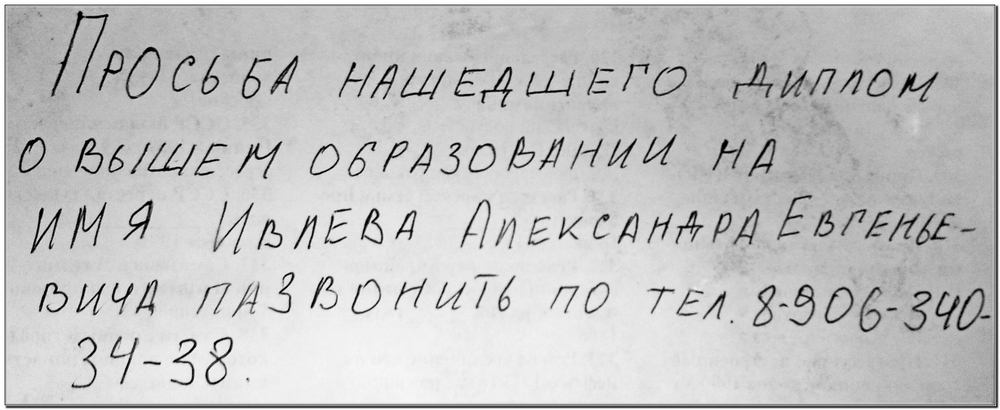 Просьба нашедшего диплом
о вышем образовании на
имя Ивлева Александра Евгенье-
вича пазвонить по тел. 8-906-340-
34-38.